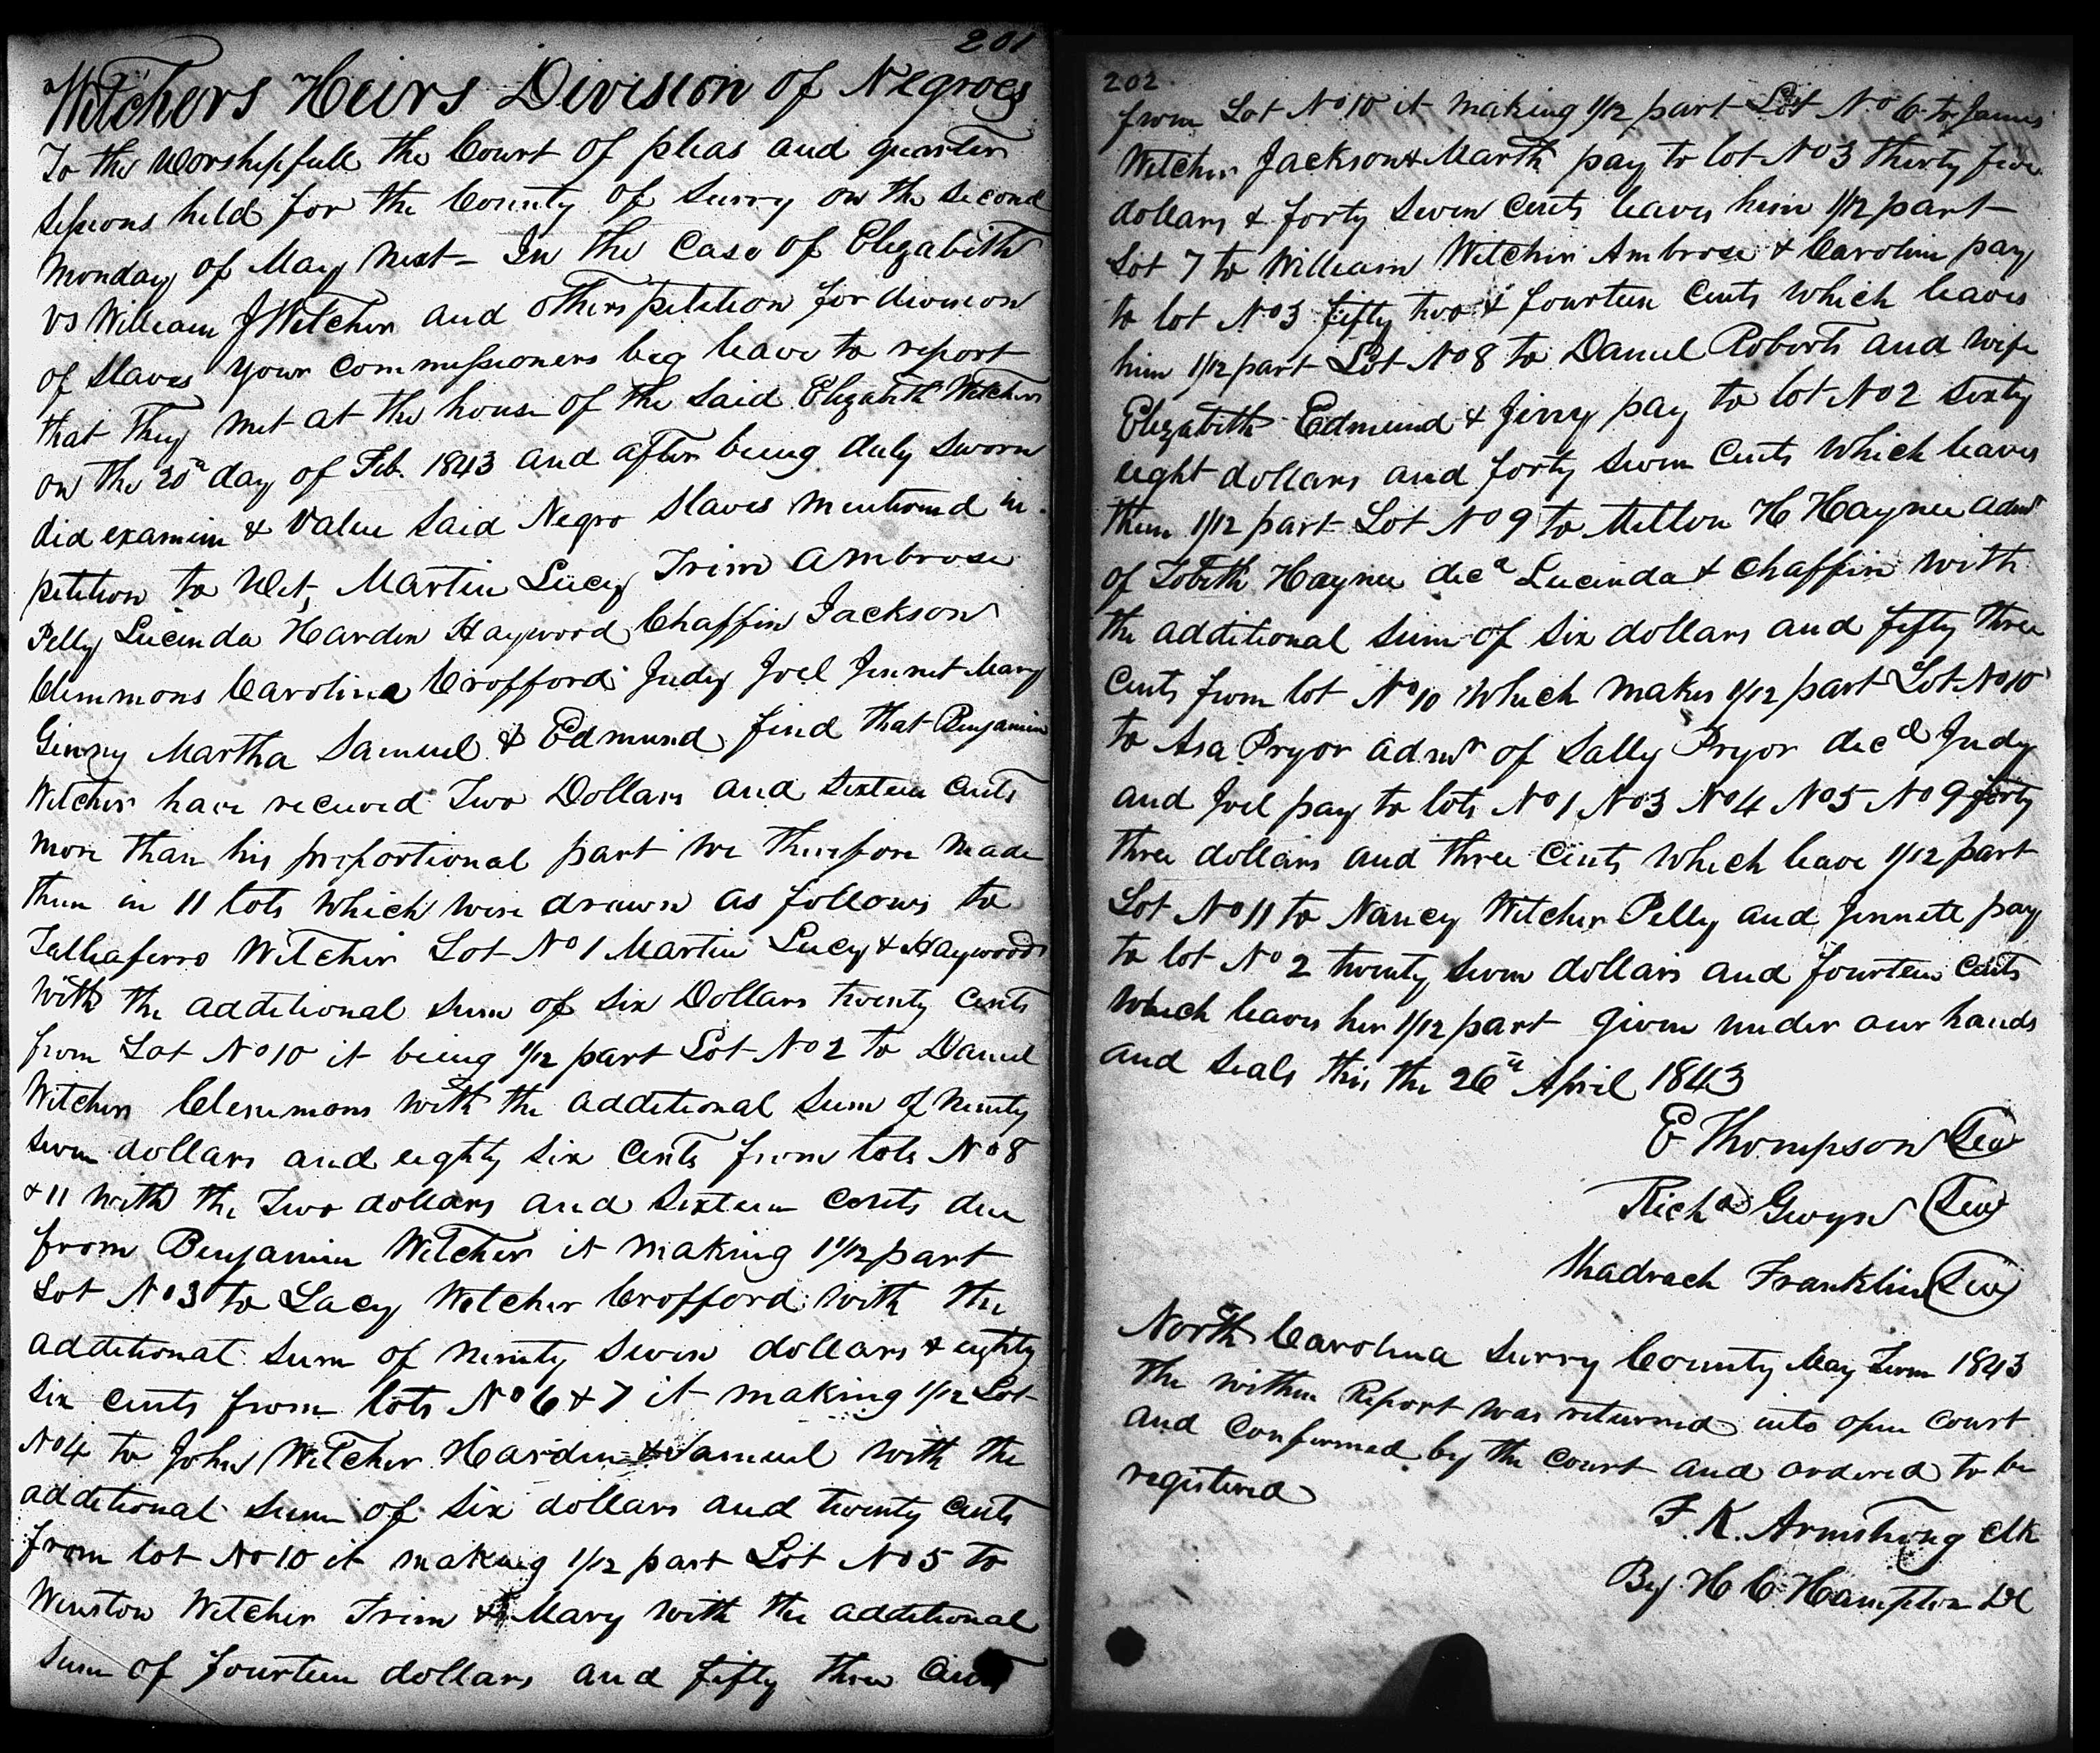 201
Witchers Heirs Division of Negroes
To the Worshipfull the Court of pleas and quarter
sessions held for the County of Surry on the second
Monday of May next - In the Case of Elizabeth
vs William J Witcher and others petition for division
of Slaves your commissioners beg leave to report
that they met at the house of the said Elizabeth Witcher
on the 20th day of Feb. 1843 and after being duly sworn
did examin & value said Negro slaves mentioned in
petition to Wit, Martin Lucy Trim Ambrose
Pelly Lucinda Hardin Haywood Chaffin Jackson
Clemmons Carolina Crofford Judy Joel Jennet Mary
Ginny Martha Samuel & Edmund find that Benjamin
Witcher have received Two Dollars and Sixteen Cents
more than his proportional part we therefore made
them in 11 lots which were drawn as follows to
Talliaferro Witcher Lot No 1 Martin Lucy & Haywood
with the additional sum of six Dollars twenty cents
from Lot No 10 it being 1/12 part Lot No 2 to Daniel
Witcher Clemmons with the additional sum of Ninety
seven dollars and eighty six cents from lots No 8
& 11 with the Two dollars and sixteen cents due
from Benjamin Witcher it making 1/12 part
Lot No 3 to Lacy Witcher Crofford with the
additional sum of ninety seven dollars & eighty
six cents from lots No 6 & 7 it making 1/12 Lot
No 4 to John Witcher Hardin & Samuel with the
additional sum of six dollars and twenty cents
from lot No 10 it making 1/12 part Lot No 5 to
Winston Witcher Trim & Mary with the additional
sum of fourteen dollars and fifty three Cents
202
from Lot No 10 it making 1/12 part Lot No 6 to James
Witcher Jackson & Marth pay to lot No 3 thirty five
dollars & forty seven cents leaves him 1/12 part
Lot 7 to William Witcher Ambrose & Carolin pay
to lot No 3 fifty two & fourteen cents which leaves
him 1/12 part Lot No 8 to Daniel Roberts and wife
Elizabeth Edmund & Jinny pay to lot No 2 sixty
eight dollars and forty seven cents which leaves
them 1/12 part Lot No 9 to Milton H Haynee admr
of Tobith Haynee decd Lucinda & Chaffin with
the additional sum of six dollars and fifty three
cents from lot No 10 which makes 1/12 part Lot No 10
to Asa Pryor admr of Sally Pryor decd Judy
and Joel pay to lots No 1 No 3 No 4 No 5 No 9 forty
three dollars and three cents which leave 1/12 part
Lot No 11 to Nancy Witcher Pelly and Jennett pay
to lot No 2 twenty seven dollars and fourteen cents
which leaves her 1/12 part given under our hands
and seals this the 26th April 1843
E Thompson Seal
Richd Gwyn Seal
Shadrach Franklin Seal
North Carolina Surry County May Term 1843
The within Report was returned into open court
and confirmed by the court and ordered to be
registered
F. K. Armstrong Clk
By H C Hampton DC